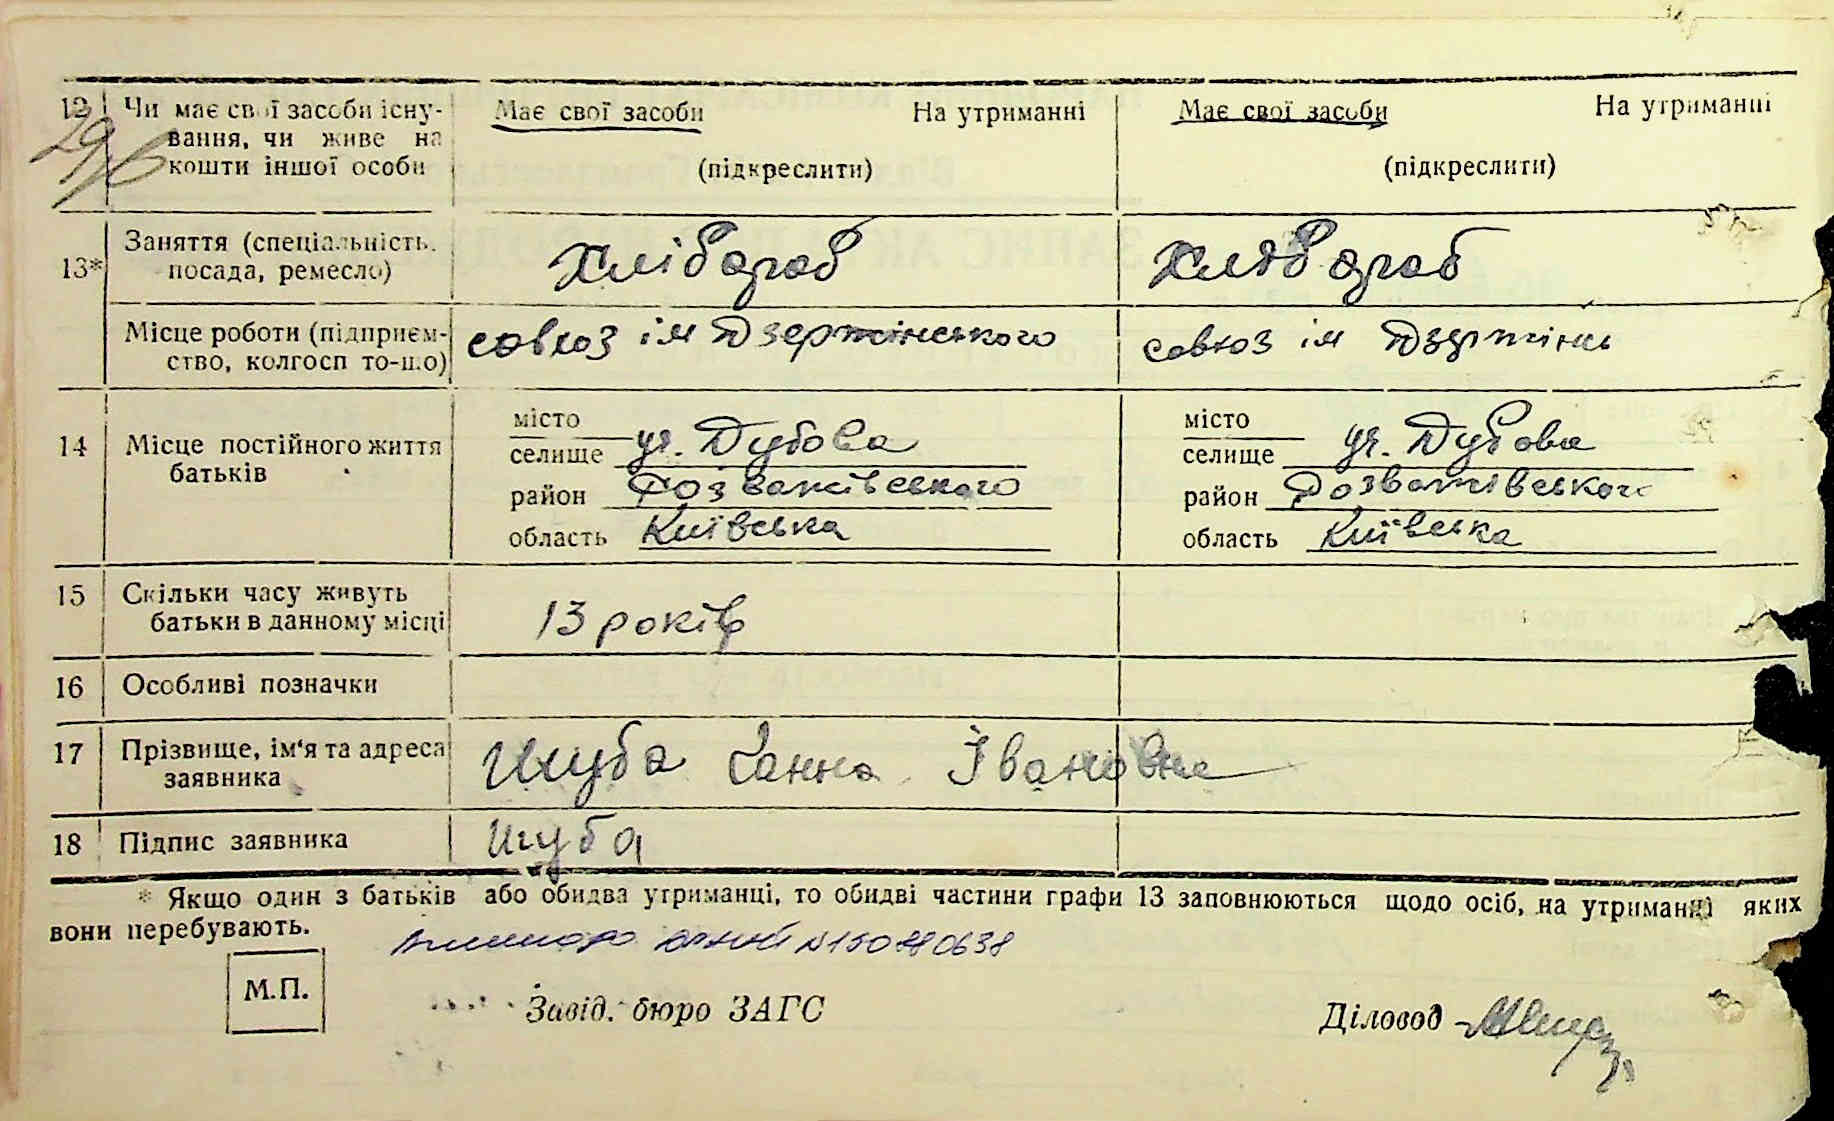 12 Чи має свої засоби існу- Має свої засоби На утриманні Має свої засоби На утриманні
вання, чи живе на
кошти іншої особи (підкреслити) (підкреслити)
29/
13* Заняття (спеціальність, посада, ремесло) Хлібороб Хлібороб
Місце роботи (підприєм- совхоз ім Дзержінського совхоз ім Дзержінсь
ство, колгосп то-що)
14 Місце постійного життя батьків
місто місто
селище уч. Дубова селище уч. Дубова
район Розважівського район Розважівського
область Київська область Київська
15 Скільки часу живуть 13 років
батьки в данному місці
16 Особливі позначки
17 Прізвище, ім'я та адреса Шуба Ганна Івановна
заявника
18 Підпис заявника Шуба
* Якщо один з батьків або обидва утриманці, то обидві частини графи 13 заповнюються щодо осіб, на утриманні яких
вони перебувають.
М.П. Завід. бюро ЗАГС Діловод